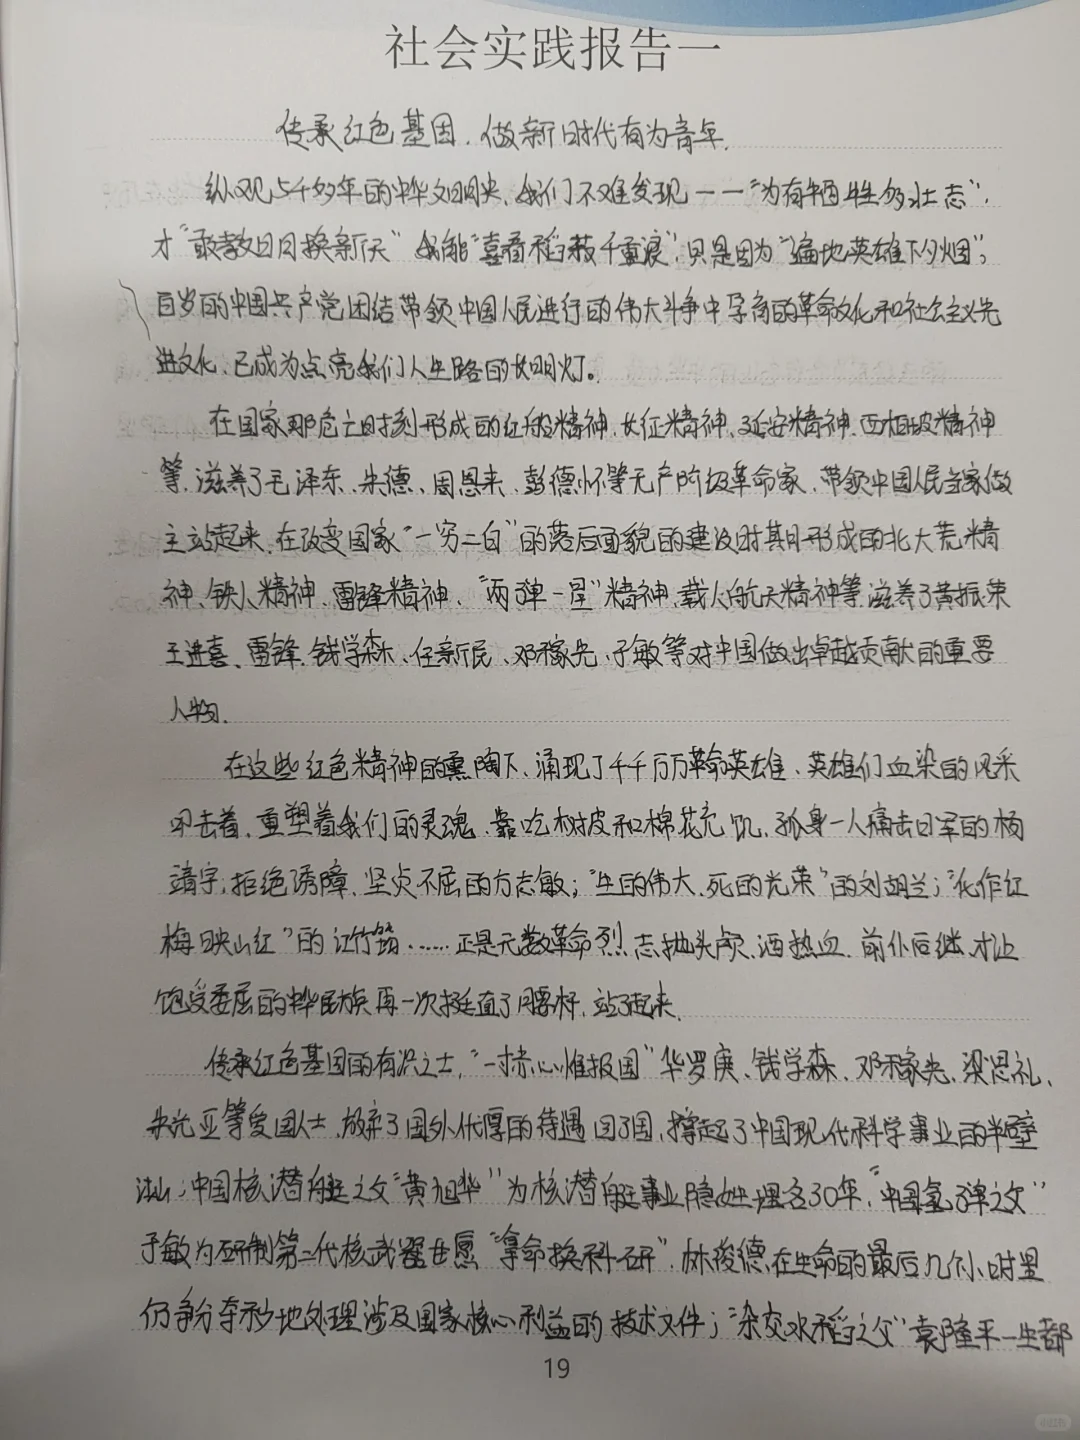 社会实践报告一
传承红色基因，做新时代有为青年.
纵观5千多年的中华文明史，我们不难发现——“为有牺牲多壮志”，
才“敢教日月换新天”我能“喜看稻菽千重浪”，只是因为“遍地英雄下夕烟”；
百岁的中国共产党团结带领中国人民进行的伟大斗争中孕育的革命文化和社会主义先
进文化，已成为点亮我们人生路的长明灯。
在国家那危亡时刻形成的红船精神、长征精神、延安精神、西柏坡精神
等，滋养了毛泽东、朱德、周恩来、彭德怀等无产阶级革命家，带领中国人民当家做
主站起来，在改变国家“一穷二白”的落后面貌的建设时期形成的北大荒精
神、铁人精神、雷锋精神、“两弹一星”精神、载人航天精神等滋养了黄振荣
王进喜、雷锋、钱学森、任新民、邓稼先、于敏等对中国做出卓越贡献的重要
人物.
在这些红色精神的熏陶下，涌现了千千万万革命英雄，英雄们血染的风采
叩击着，重塑着我们的灵魂，靠吃树皮和棉花充饥，孤身一人痛击日军的杨
靖宇；拒绝诱降，坚贞不屈的方志敏；“生的伟大、死的光荣”的刘胡兰；“化作红
梅映山红”的江竹筠……正是无数革命烈志抛头颅，洒热血，前仆后继，才让
饱受委屈的中华民族再一次挺直了腰杆，站了起来.
传承红色基因的有识之士，“一寸赤心惟报国”华罗庚、钱学森、邓稼先、梁思礼、
朱光亚等爱国人士，放弃了国外优厚的待遇回了国，撑起了中国现代科学事业的半壁
江山；中国核潜艇之父“黄旭华”为核潜艇事业隐姓埋名30年，“中国氢弹之父”
于敏为研制第二代核武器甘愿“拿命换科研”，林俊德在生命的最后几个小时里
仍争分夺秒地处理涉及国家核心利益的技术文件；“杂交水稻之父”袁隆平一生都
19